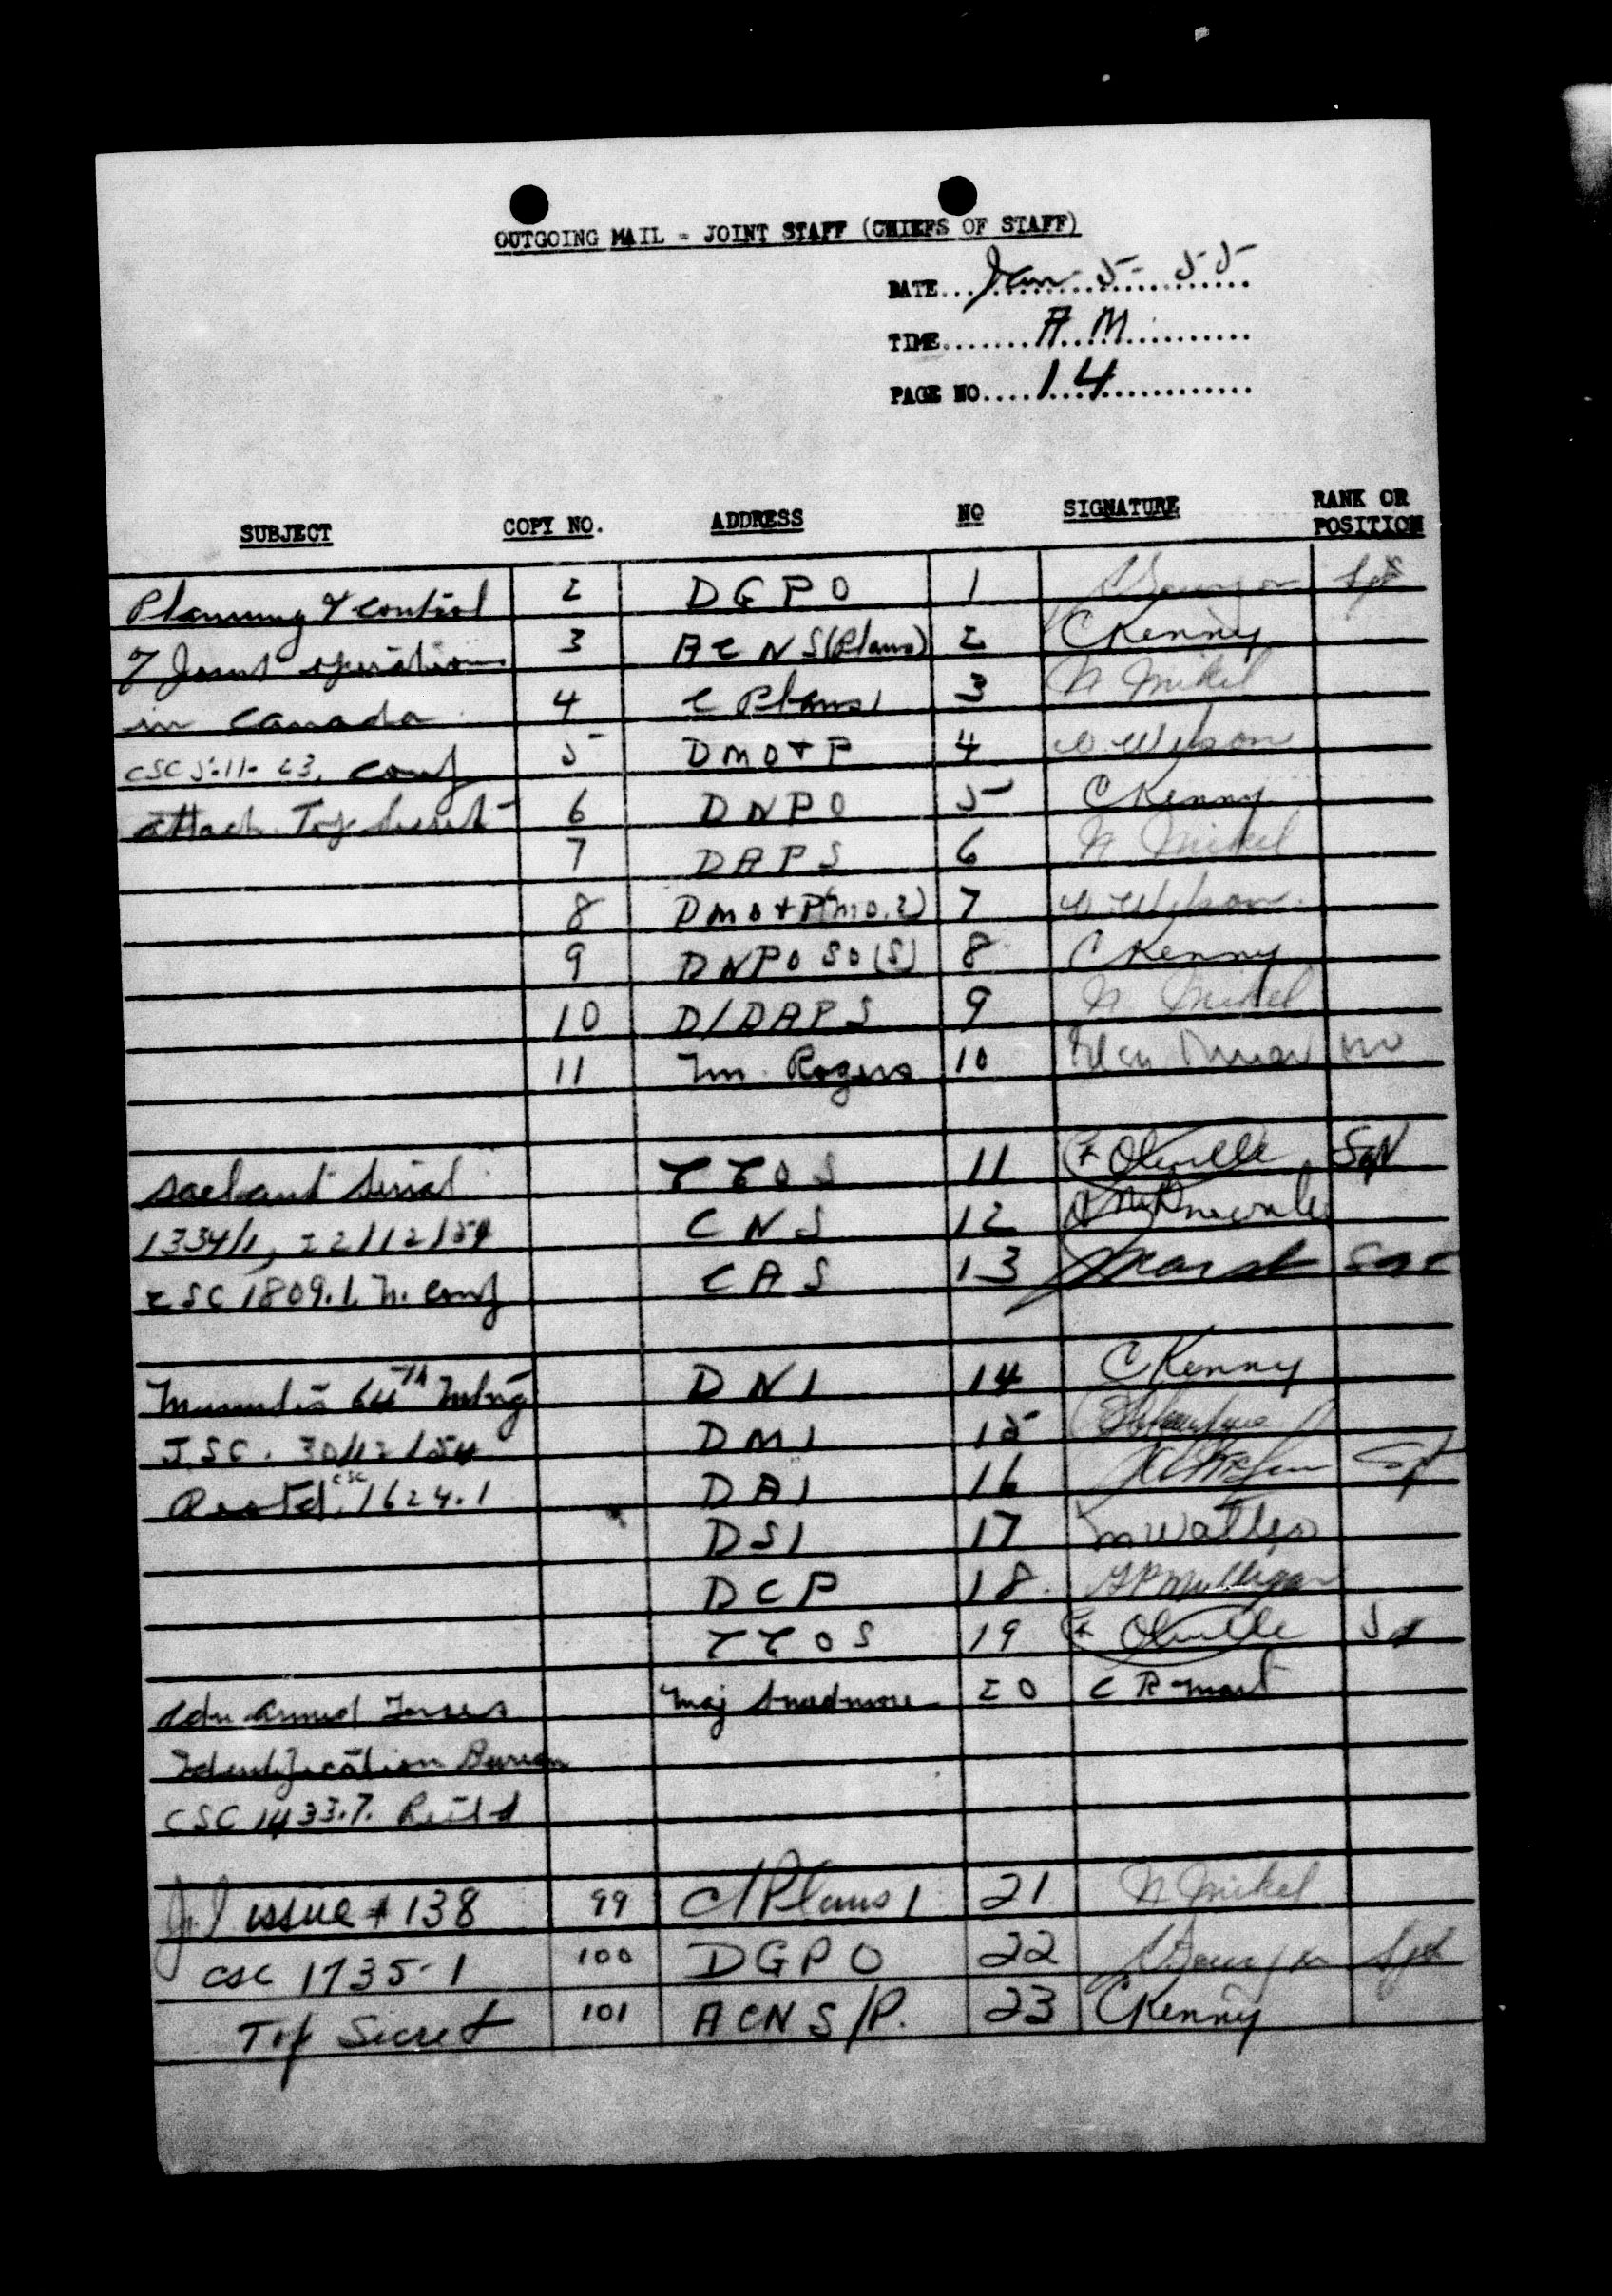 OUTGOING MAIL - JOINT STAFF (CHIEFS OF STAFF)
DATE... Jan 5 - 55
TIME....... A.M.
PAGE NO.... 14
SUBJECT COPY NO. ADDRESS NO SIGNATURE RANK OR POSITION
Planning & Control 2 DGPO 1 Sgt
of Joint operations 3 ACNS (Plans) 2 CKenny
in Canada 4 C Plans 1 3 N Mikel
CSC 5-11-23, Conf 5 DMO+P 4 W Wilson
attach. Top Secret 6 DNPO 5 CKenny
7 DAPS 6 N Mikel
8 DMO+P(MO.2) 7 W Wilson
9 DNPO SO(S) 8 CKenny
10 D/DAPS 9 N Mikel
11 Mr. Rogers 10
Saclant Serial CCOS 11
1334/1, 22/12/54 CNS 12
CSC 1809.1. Conf CAS 13
Minutes 64TH Mtng DNI 14 CKenny
JSC. 30/12/54 DMI 15
CSC 1624.1 DAI 16 Sgt
DSI 17 M Watters
DCP 18. Mulligan
CCOS 19
Cdn Armed Forces Maj 20
Identification Bureau
CSC 1433.7. Rest'd
issue # 138 99 C/Plans 1 21 N Mikel
CSC 1735-1 100 DGPO 22 Sgt
Top Secret 101 ACNS/P. 23 CKenny